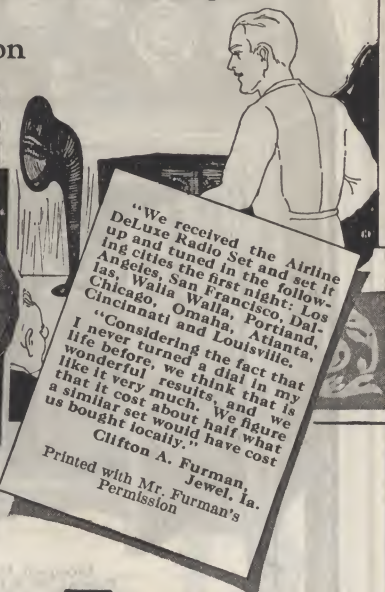 on
"We received the Airline
DeLuxe Radio Set and set it
up and tuned in the follow-
ing cities the first night: Los
Angeles, San Francisco, Dal-
las, Walla Walla, Portland,
Chicago, Omaha, Atlanta,
Cincinnati and Louisville.
"Considering the fact that
I never turned a dial in my
life before, we think that is
wonderful results, and we
like it very much. We figure
that it cost about half what
a similar set would have cost
us bought locally."
Clifton A. Furman,
Jewel, Ia.
Printed with Mr. Furman's
Permission